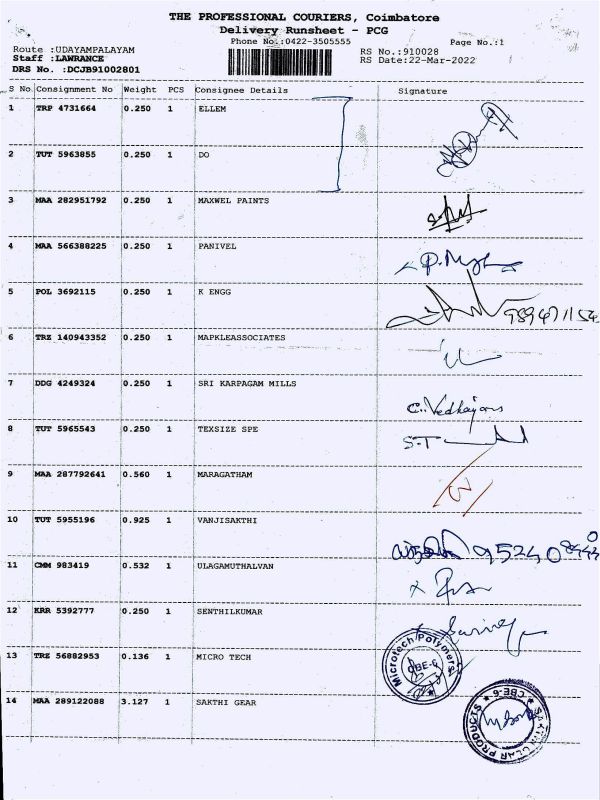 THE PROFESSIONAL COURIERS, Coimbatore
Delivery Runsheet - PCG
Phone No.:0422-3505555
Page No.:1
Route :UDAYAMPALAYAM
RS No.:910028
Staff :LAWRANCE
RS Date:22-Mar-2022
DRS No. :DCJB91002801
S No Consignment No Weight PCS Consignee Details Signature
1 TRP 4731664 0.250 1 ELLEM
2 TUT 5963855 0.250 1 DO
3 MAA 282951792 0.250 1 MAXWEL PAINTS
4 MAA 566388225 0.250 1 PANIVEL
5 POL 3692115 0.250 1 K ENGG
6 TRZ 140943352 0.250 1 MAPKLEASSOCIATES
7 DDG 4249324 0.250 1 SRI KARPAGAM MILLS
8 TUT 5965543 0.250 1 TEXSIZE SPE
S.T
9 MAA 287792641 0.560 1 MARAGATHAM
10 TUT 5955196 0.925 1 VANJISAKTHI
11 CMM 983419 0.532 1 ULAGAMUTHALVAN
12 KRR 5392777 0.250 1 SENTHILKUMAR
13 TRZ 56882953 0.136 1 MICRO TECH
Microtech Polymers
CBE-6
14 MAA 289122088 3.127 1 SAKTHI GEAR
SAKTHI GEAR PRODUCTS
CBE-6